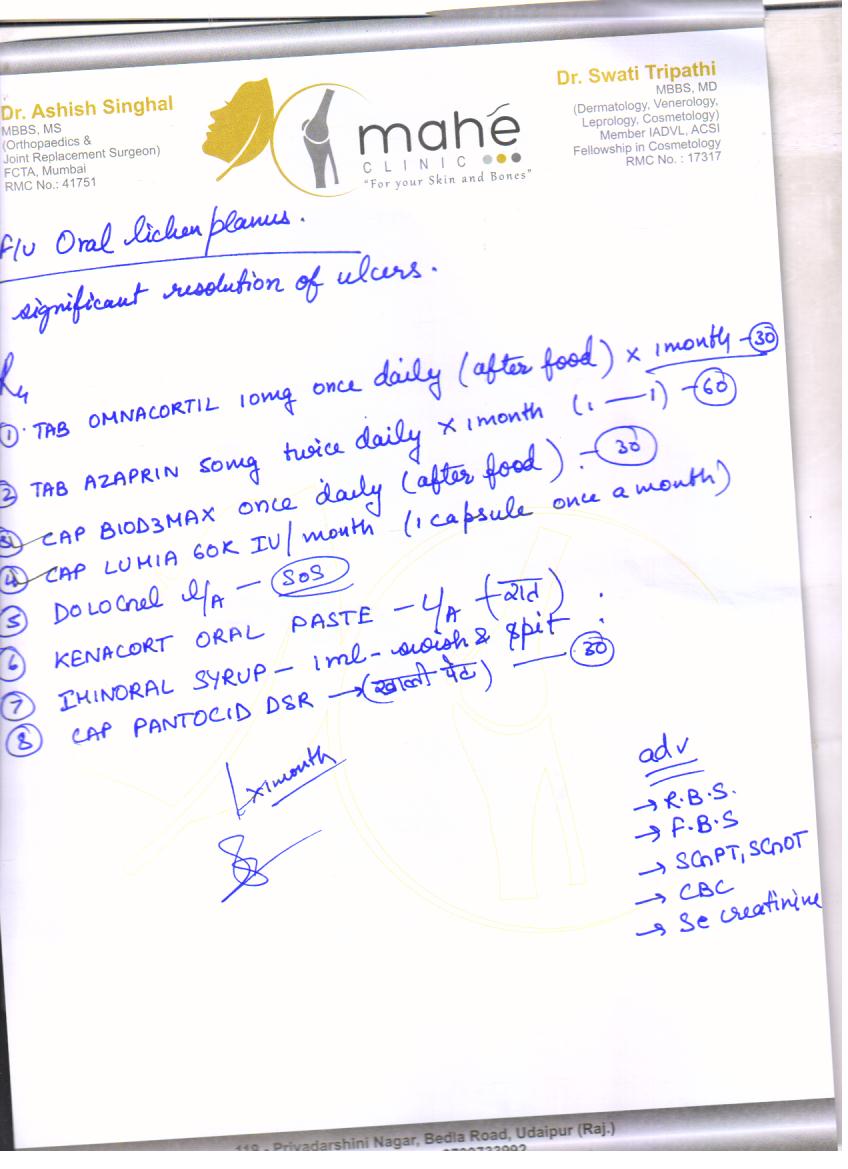 Dr. Ashish Singhal
MBBS, MS
(Orthopaedics &
Joint Replacement Surgeon)
FCTA, Mumbai
RMC No.: 41751
mahé
CLINIC
"For your Skin and Bones"
Dr. Swati Tripathi
MBBS, MD
(Dermatology, Venerology,
Leprology, Cosmetology)
Member IADVL, ACSI
Fellowship in Cosmetology
RMC No. : 17317
F/U Oral lichen planus.
significant resolution of ulcers.
Rx
① TAB OMNACORTIL 10mg once daily (after food) x 1month - 30
② TAB AZAPRIN 50mg twice daily x 1month (1 — 1) - 60
③ CAP BIOD3MAX once daily (after food). - 30
④ CAP LUMIA 60K IU/month (1 capsule once a month)
⑤ DOLOGel L/A - SOS
⑥ KENACORT ORAL PASTE - L/A - (रात)
⑦ IMINORAL SYRUP - 1ml - swish & spit
⑧ CAP PANTOCID DSR → (खाली पेट) — 30
x1month
adv
→ R.B.S.
→ F.B.S
→ SGPT, SGOT
→ CBC
→ Se creatinine
119 - Privadarshini Nagar, Bedla Road, Udaipur (Raj.)